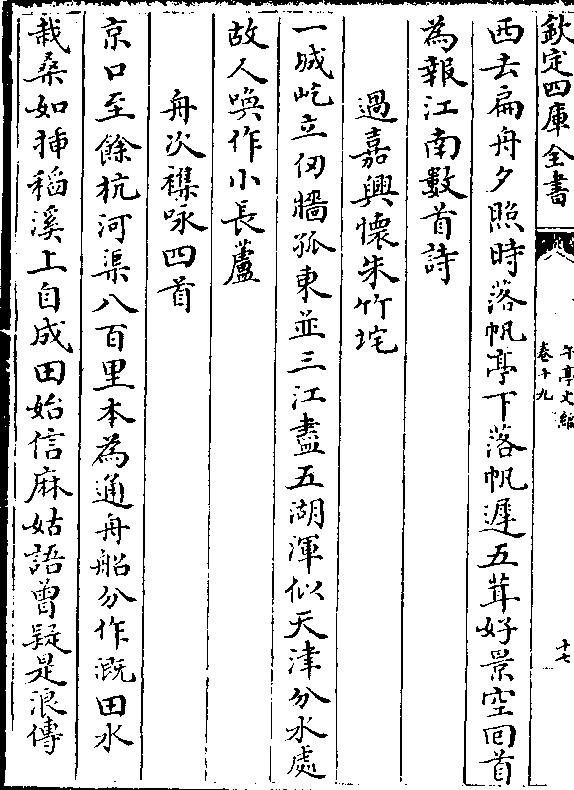 欽定四庫全書
午亭文編
卷十九
十七
西去扁舟夕照時落帆亭下落帆遲五茸好景空回首
為報江南數首詩
過嘉興懷朱竹垞
一城屹立仞牆孤東並三江盡五湖渾似天津分水處
故人喚作小長蘆
舟次襍咏四首
京口至餘杭河渠八百里本為通舟船分作溉田水
栽桑如插稻溪上自成田始信麻姑語曾疑是浪傳